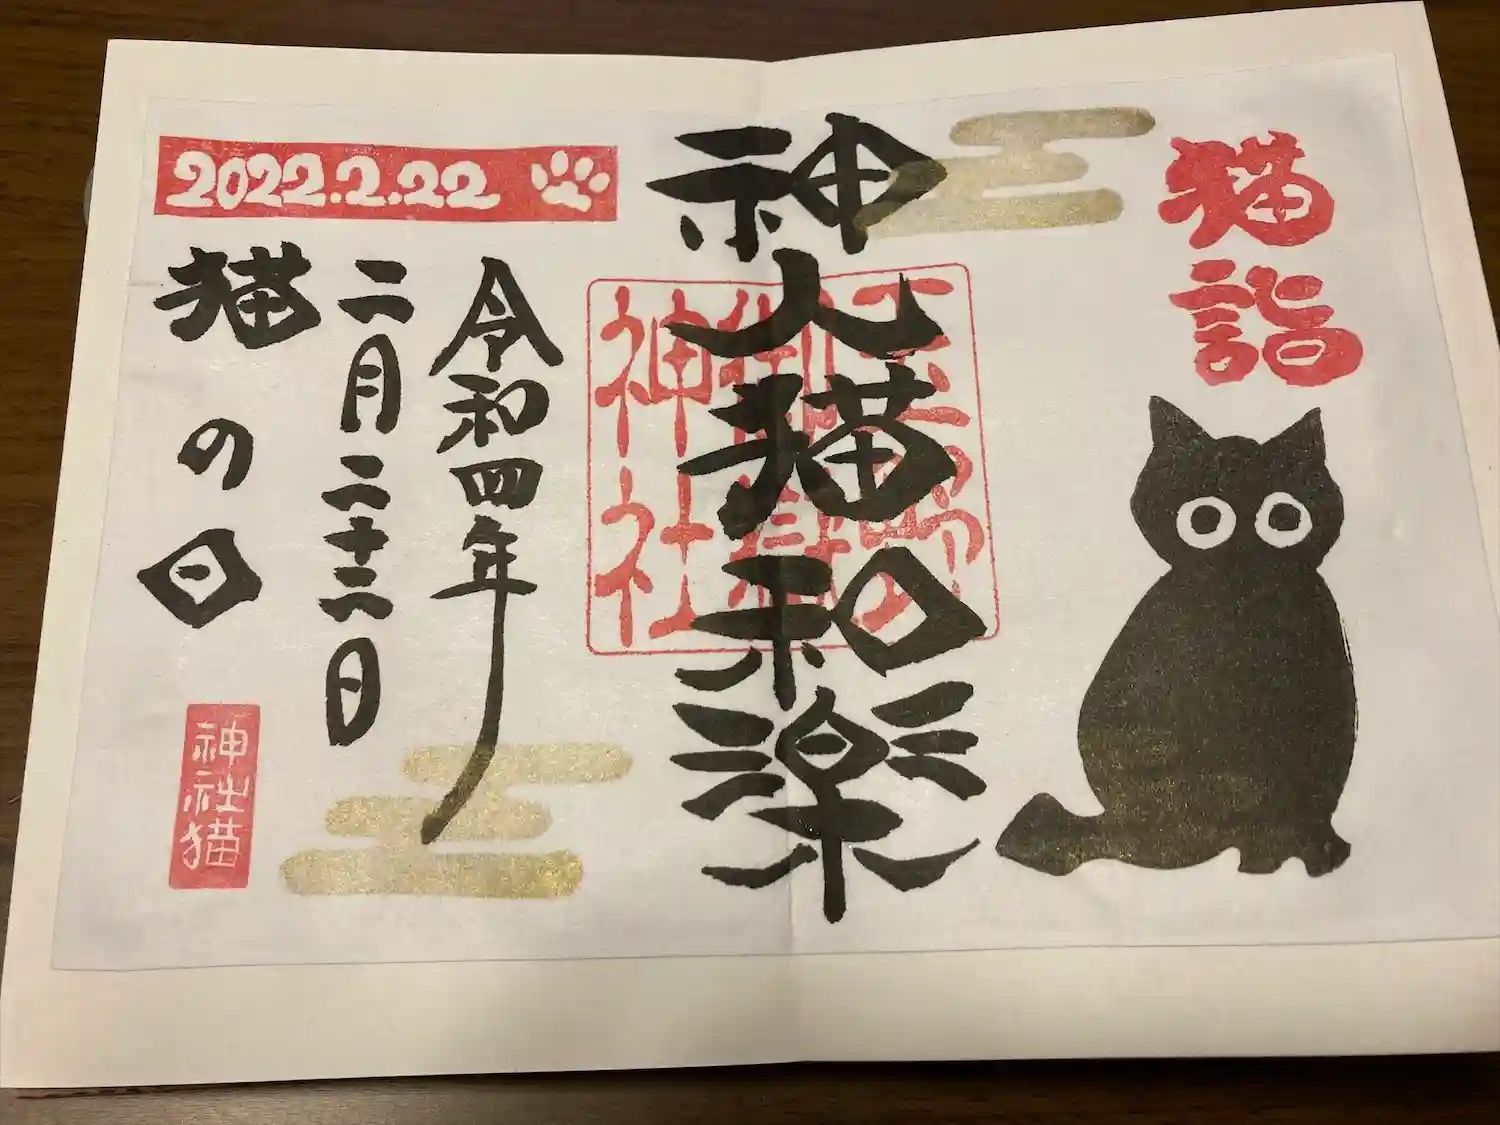 猫詣
神人猫和楽
玉野御嶽神社
令和四年
二月二十二日
猫の日
2022.2.22
神社猫